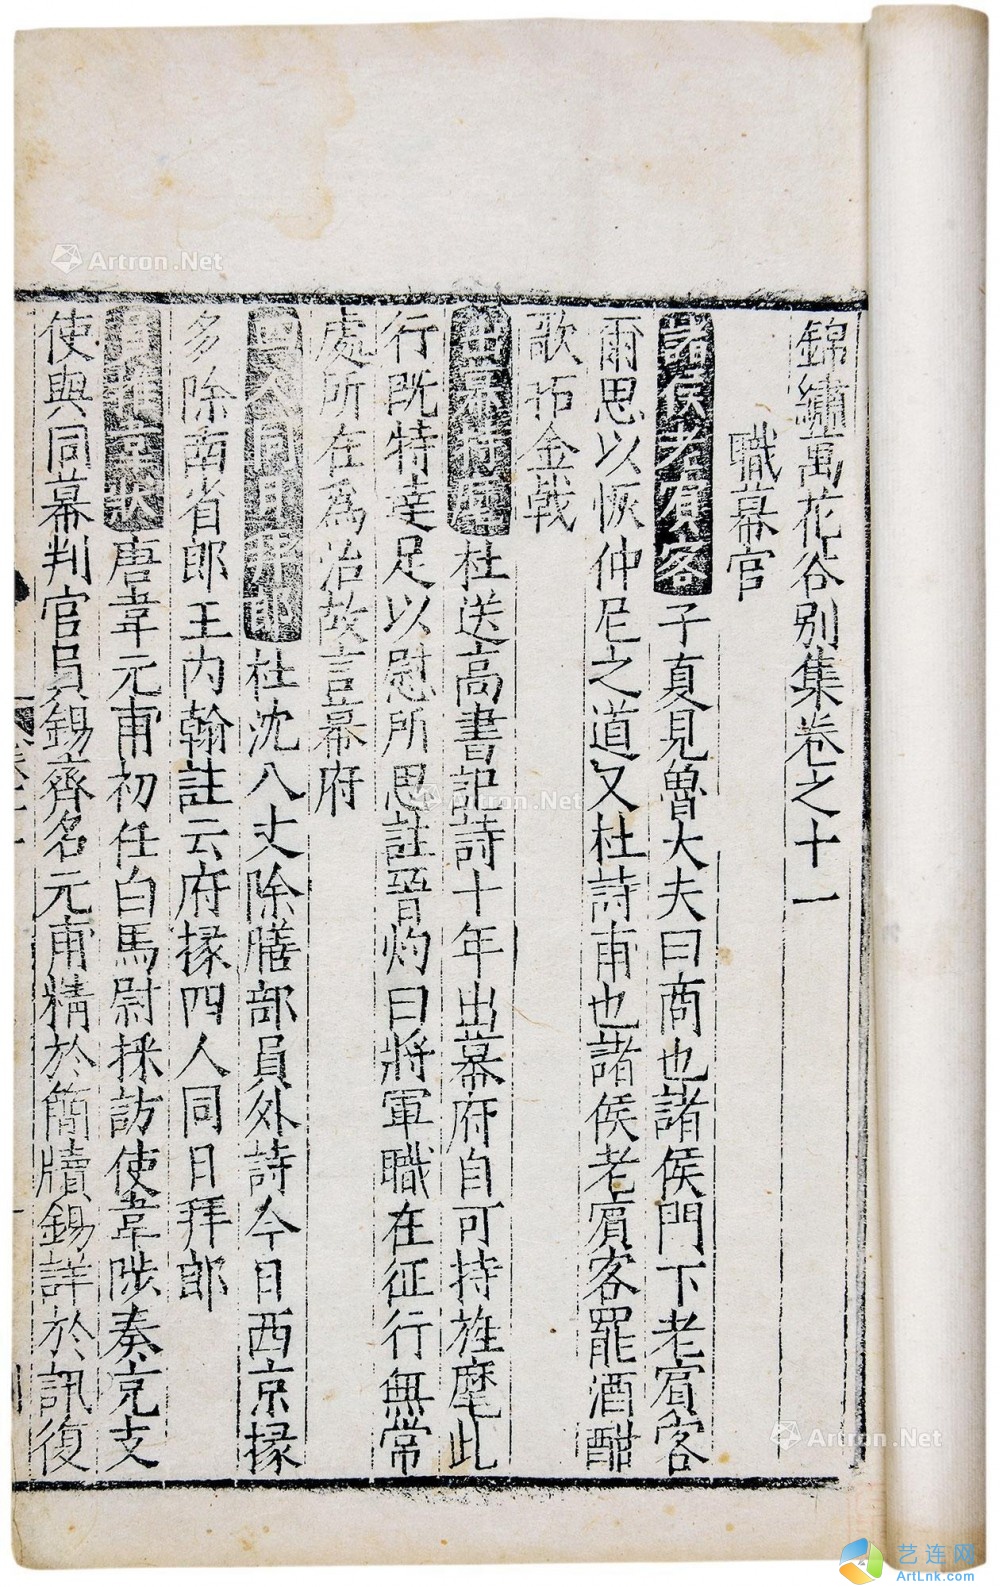 錦繡萬花谷别集卷之十一
職幕官
諸侯老賓客子夏見魯大夫曰商也諸侯門下老賓客
爾思以恢仲尼之道又杜詩甫也諸侯老賓客罷酒酣
歌拓金戟
出幕持麾杜送高書記詩十年出幕府自可持旌麾此
行既特達足以慰所思註晉灼曰將軍職在征行無常
處所在為治故言幕府
四人同日拜郎杜沈八丈除膳部員外詩今日西京掾
多除南省郎王内翰註云府掾四人同日拜郎
員推京狀唐韋元甫初任白馬尉採訪使韋陟奏充支
使與同幕判官員錫齊名元甫精於簡牘錫詳於訊復
Artron.Net
Artron.Net
Artron.Net
艺连网
ArtLnk.com